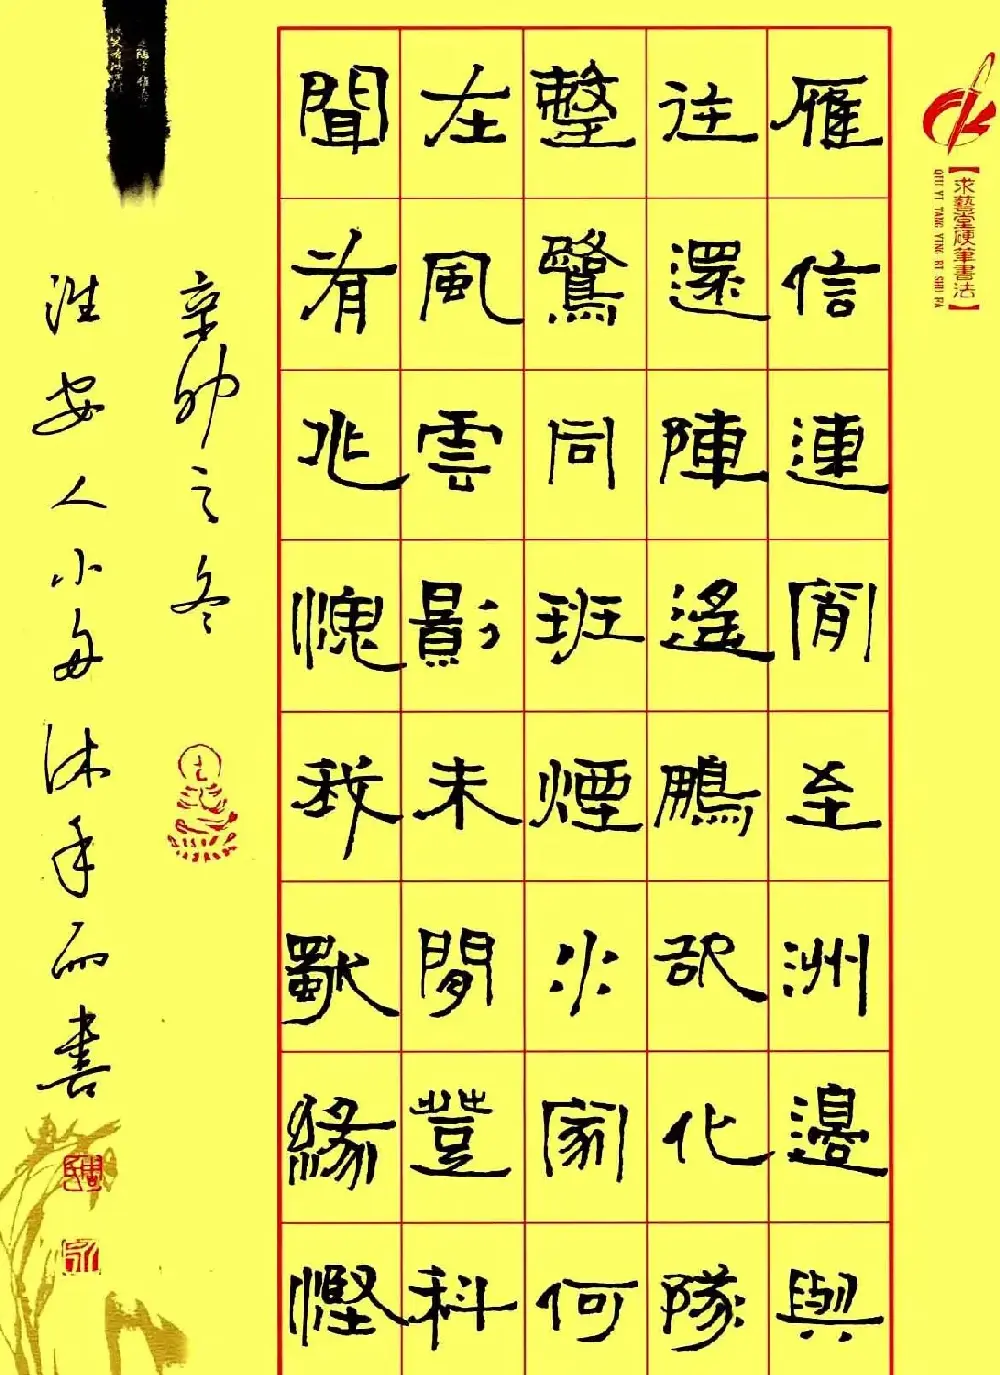 雁信連宵至洲邊與
往還陣遙鵬欲化隊
整鷺同班煙水家何
在風雲影未閒豈科
聞有兆愧我歎緣慳
辛卯之冬
淮安人小舟沐手而書
【求藝堂硬筆書法】
QIU YI TANG YING BI SHU FA